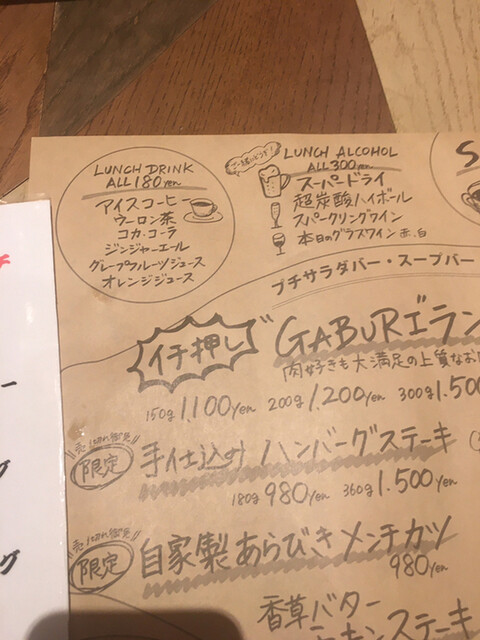 LUNCH DRINK
ALL 180yen
アイスコーヒー
ウーロン茶
コカ・コーラ
ジンジャーエール
グレープフルーツジュース
オレンジジュース
ご一緒にどうぞ!
LUNCH ALCOHOL
ALL 300yen
スーパードライ
超炭酸ハイボール
スパークリングワイン
本日のグラスワイン 赤、白
S
プチサラダバー・スープバー
イチ押し
"GABURI"ラン
肉好きも大満足の上質なお
150g 1,100yen 200g 1,200yen 300g 1,500
売り切れ御免
限定
手仕込み ハンバーグステーキ
180g 980yen 360g 1,500yen
売り切れ御免
限定
自家製 あらびきメンチカツ
980yen
香草バター
チキンステーキ